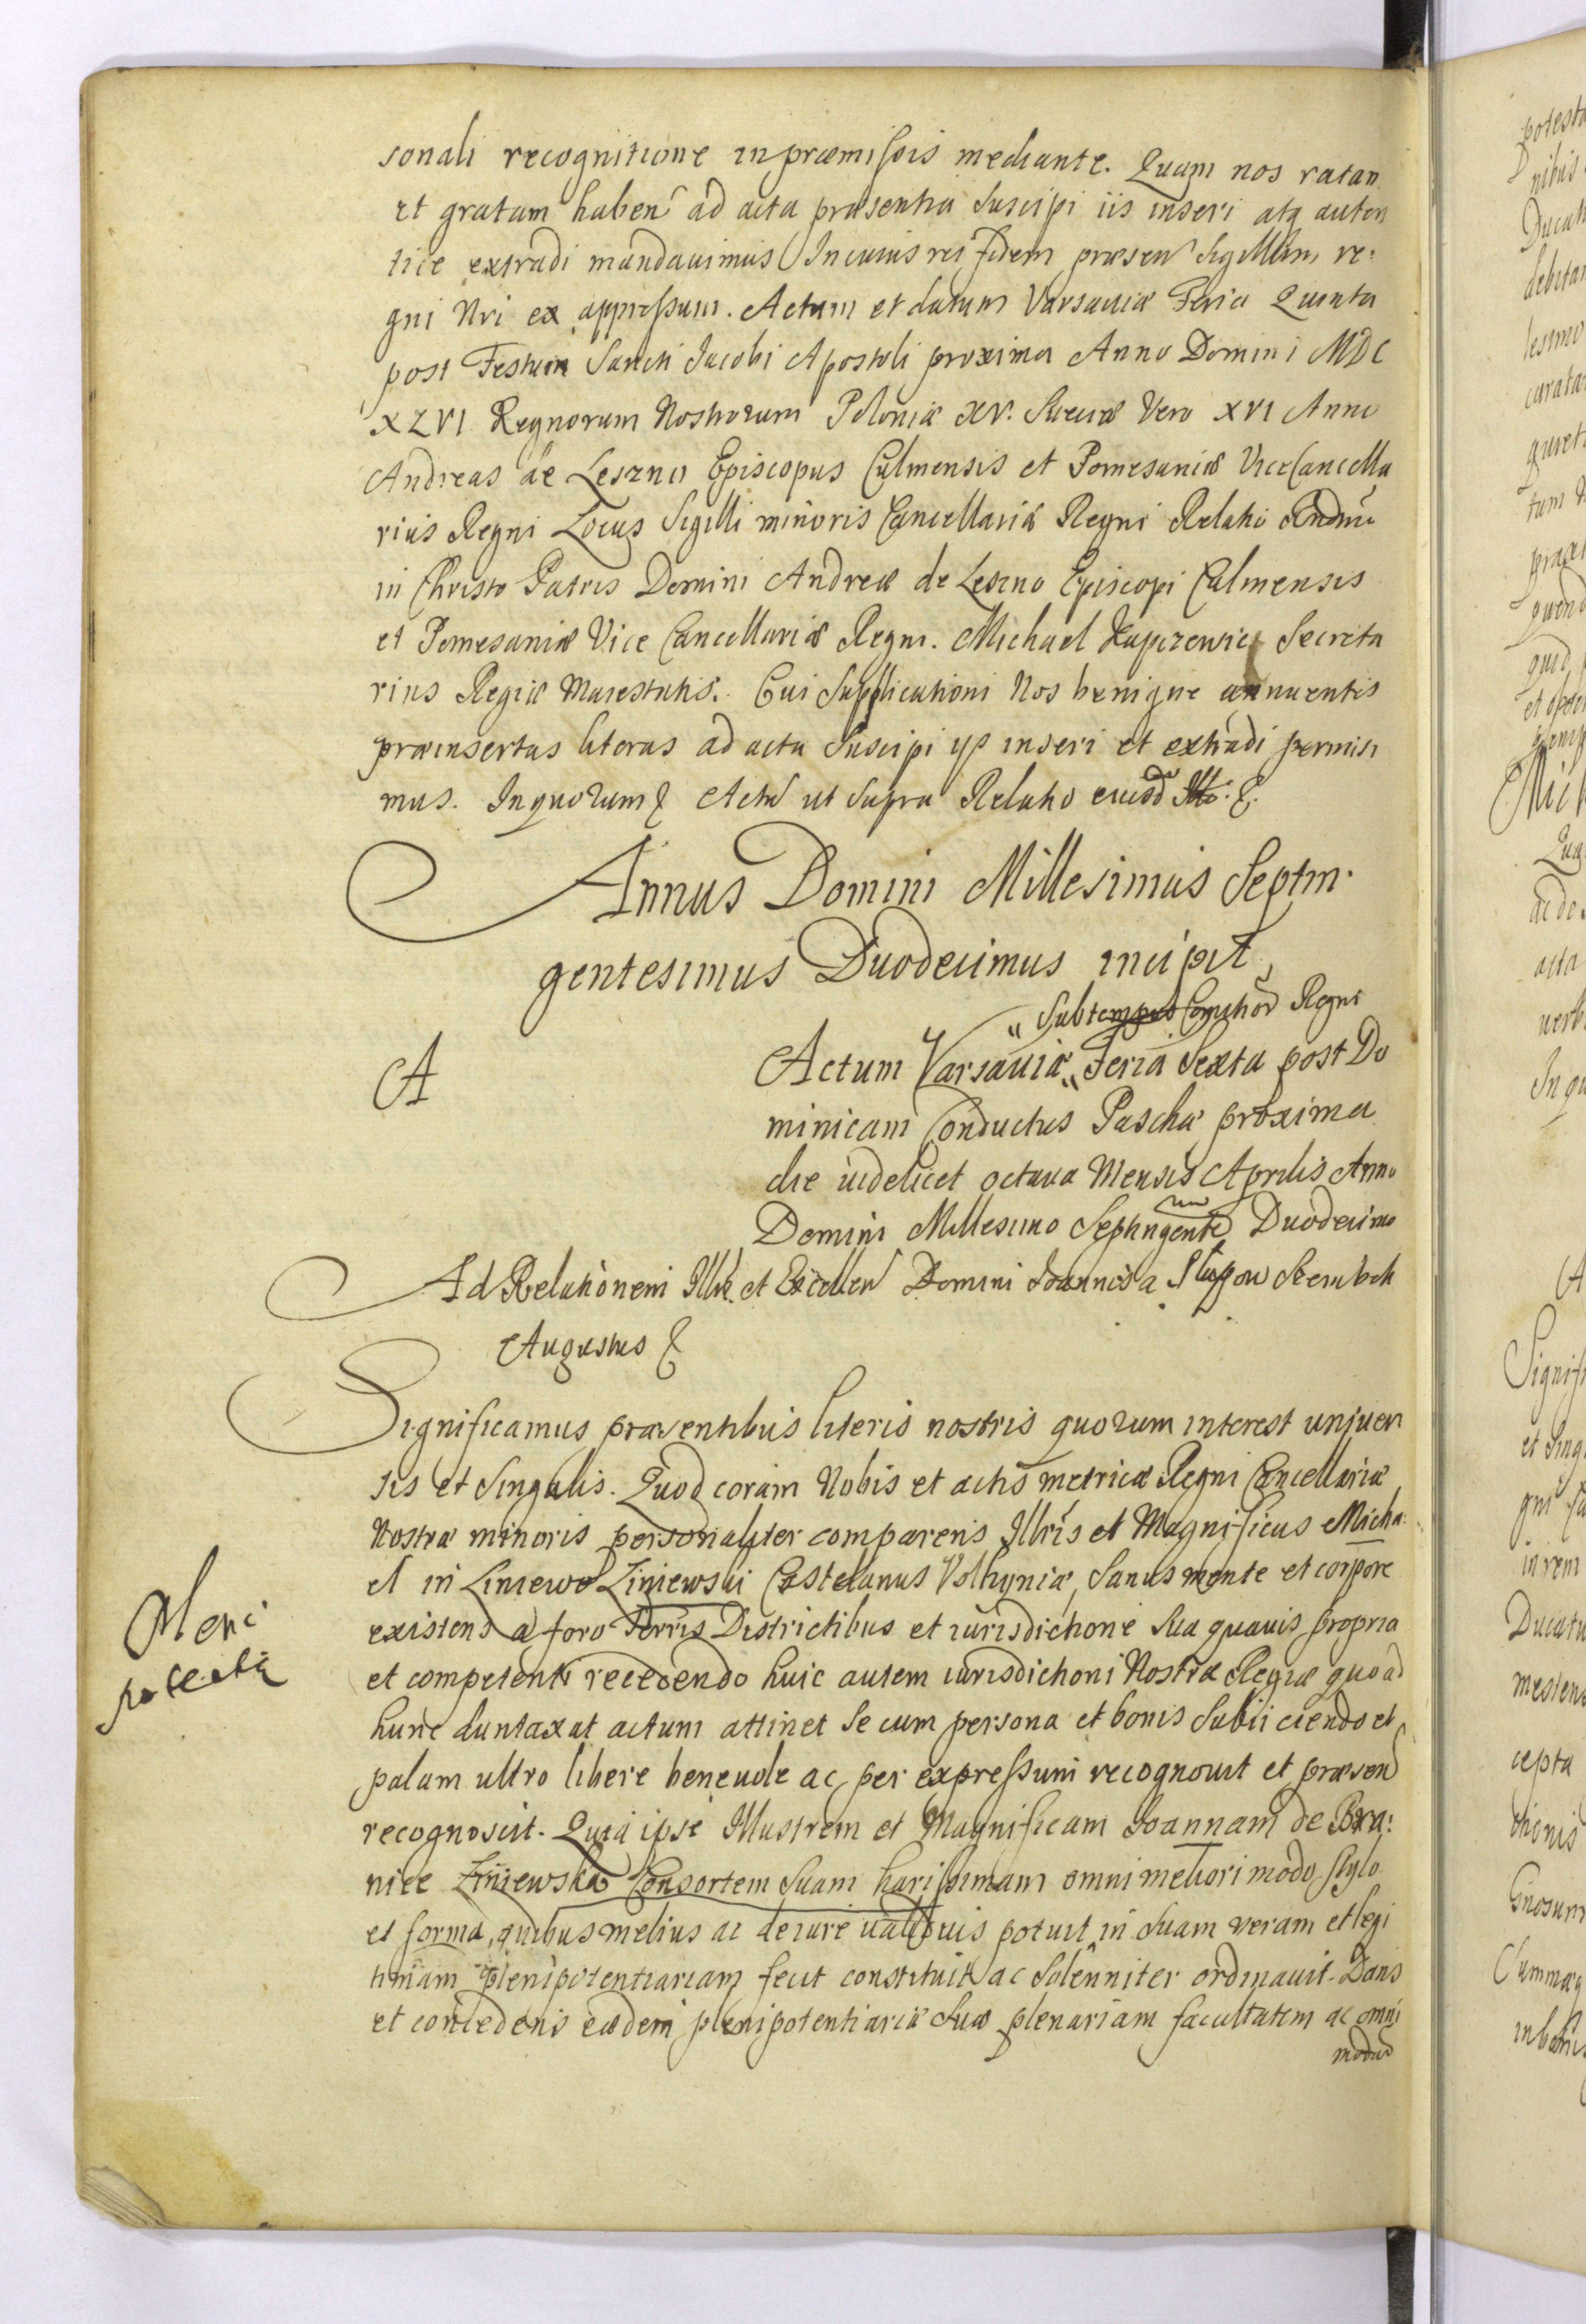 sonali recognitione in præmissis mediante. Quam nos ratam
et gratam haben ad acta præsentia suscipi iis inseri atq auten
tice extradi mandauimus In cuius rei fidem præsen Sigillum re:
gni Nri ex appressum. Actum et datum Varsauiæ Feria Quinta
post Festum Sancti Jacobi Apostoli proxima Anno Domini MDC
XLVI Regnorum Nostrorum Poloniæ XV. Sueciæ Vero XVI Anno
Andreas de Leszno Episcopus Culmensis et Pomesaniæ ViceCancella
rius Regni Locus Sigilli minoris Cancellariæ Regni Relatio Rndmi
in Christo Patris Domini Andreæ de Leszno Episcopi Culmensis
et Pomesaniæ Vice Cancellariæ Regni. Michael Secreta
rius Regiæ Maiestatis. Cui Supplicationi Nos benigne annuentes
præinsertas literas ad acta suscipi ys inseri et extradi permisi
mus. Inquorum Actu ut supra Relatio eiusd
Annus Domini Millesimus Septin.
gentesimus Duodecimus incipit
Sub tempus Comitior Regni
A
Actum Varsauiæ Feria Sexta post Do
minicam Conductus Paschæ proxima
die uidelicet octaua Mensis Aprilis Anno
Domini Millesimo Septingente Duodecimo
Ad Relationem Illris et Excellen Domini Joannis a Slupow Szembek
Augustus
Significamus præsentibus literis nostris quorum interest uniuer
sis et Singulis. Quod coram Nobis et actis metricæ Regni Cancellariæ
Nostræ minoris personaliter comparens Illris et Magnificus Micha
el in Liniewo Liniewski Castelanus Volhyniæ, Sanus mente et corpore
existens a foro Terris Districtibus et iurisdictione Sua quauis propria
et competenti recedendo huic autem iurisdictioni Nostræ Regiæ quoad
hunc duntaxat actum attinet Se cum persona et bonis Subiiciendo et
palam ultro libere beneuole ac per expressum recognouit et præsen
recognoscit. Quia ipse Illustrem et Magnificam Joannam de Bra:
nice Liniewska Consortem Suam harissimam omni meliori modo stylo
et forma, quibus melius ac de iure ualidiuis potuit in Suam veram et legi
timam plenipotentiariam fecit constituit ac Solenniter ordinauit. Dans
et concedens eædem plenipotentiariæ Suæ plenariam facultatem ac omni
modam
Pleni
potestia